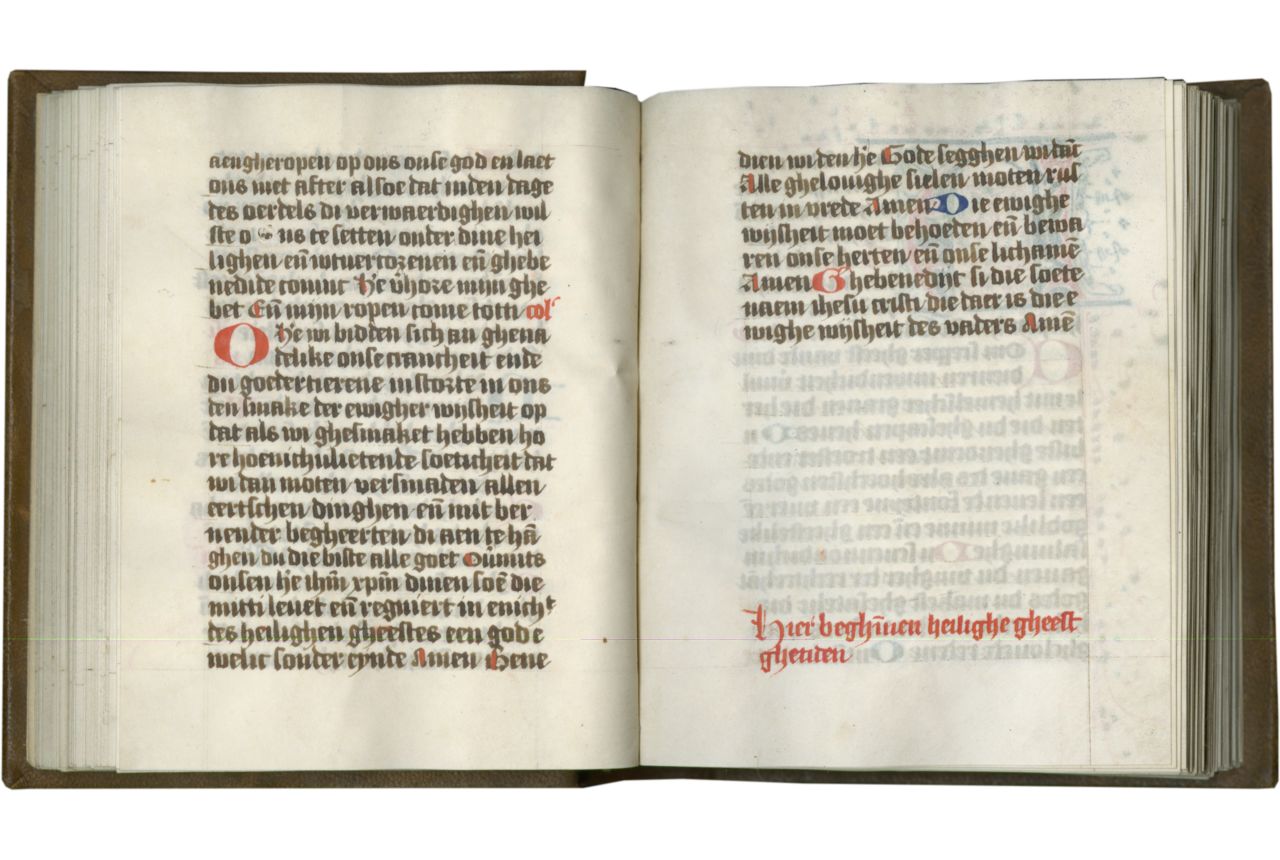 aengheropen op ons onse god en laet
ons niet after alsoe dat inden daghe
des oerdels di verwaerdighen wil
ste o ns te setten onder dine hei
lighen eñ wtuercozenen eñ ghebe
nedide comut He v̄hore mijn ghe
bet Eñ mijn ropen come totti col̄
O He wi bidden sich an ghena
delike onse crancheit ende
du goedertierene instorte in ons
den smake der ewigher wijsheit op
dat als wi ghesmaket hebben ho
re hoenichulietende soeticheit dat
wi dan moten versmaden allen
eertschen dinghen eñ mit ber
nender begheerten di aen te hā
ghen du die biste alle goet Ouīmits
onsen h̄e ihm̄ xpm̄ dinen soē die
mitti leuet eñ regniert in enich
des heilighen gheestes een god e
welic sonder eynde Amen Bene
dien wi den h̄e Gode segghen wi dāc
Alle ghelouighe sielen moten rus
ten in vrede Amen Die ewighe
wijsheit moet behoeden eñ bewa
ren onse herten eñ onse lichamē
Amen Ghebenedijt si die soete
naem ihesu cristi die daer is die e
wighe wijsheit des vaders Amē
Hier beghīnen heilighe gheest
ghetiden